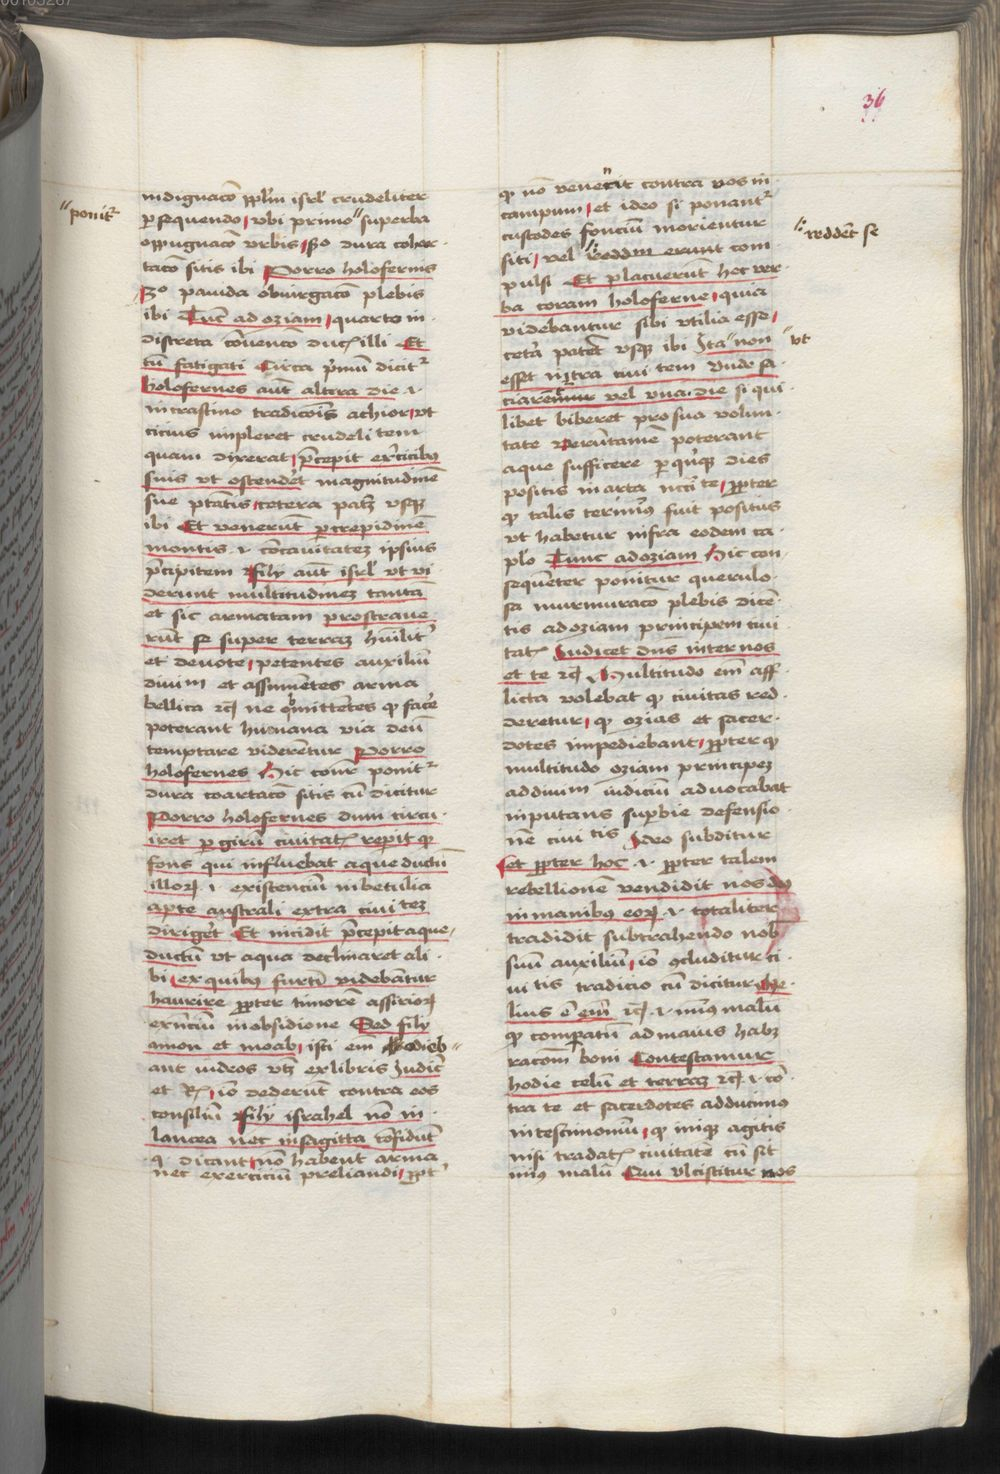 36
indignacō pplm isrl crudeliter
persequendo vbi primo superba
ponit᷑
oppugnacō vrbis 2o dura coher
tacō sitis ibi Porro holofernis
3o pauida obiurgacō plebis
ibi Tunc ad oziam quarto in
discreta cōuencō duc illi Et
cū fatigati Circa pͥmū dicit᷑
holofernes aūt altera die .i.
in crastino tradicōis achior vt
cicius impleret crudelitem
quam dixerat pͨcepit exͤcitibꝰ
suis vt ostendet magnitudinē
sue ptātis cetera patꝫ vsqꝫ
ibi Et venerūt per crepidinē
montis .i. cōcauitateꝫ ipsius
pͨcipitem Filij aūt isrl vt vi
derunt multitudineꝫ tantā
et sic armatam prostraue
rūt se super terraꝫ hūilit᷑
et deuote petentes auxiliū
diuinū et assumētes arma
bellica ꝛc ne obmittētes qꝫ facͤe
poterant humana via deū
temptare viderētur Porro
holofernes Hic cōnr ponit᷑
dura coartacō sitis cū dicitur
Porro holofernes dum circu
iret per girū ciuitatꝭ repit qꝫ
fons qui influebat aque ductū
illoꝝ .i. existenciū in betulia
a parte australi extra ciuiteꝫ
dirigͤet Et incidit pͨcepit aque
ductū vt aqua declinaret ali
bi ex quibꝰ furtī videbātur
haurire ꝓpter timorē assirioꝝ
exͤrcitū in obsidione Sed filij
amon et moab isti em̄ hodieb
ant iudeos vtꝫ ex libris Judicū
et Rꝭ io dederūt contra eos
consiliū Filij israhel nō in
lancea nec in sagitta cōfidūt
q dicant nō habent arma
nec exercitiū preliandi ꝓpt᷑
qꝫ nō veneint contra vos in
campum et ideo si ponant᷑
custodes fonciū morientur
siti vel reddm erunt com
reddēt se
pulsi Et placuerūt hec ver
ba coram holoferne quia
videbantur sibi vtilia esse
ceta patēt vsqꝫ ibi Ita non
vt
esset intra ciuitem vnde sa
ciarentur vel vna die si qui
libet biberet pro sua volun
tate Verūtamē poterant
aque sufficere per qͥnqꝫ dies
positis in arta nccͣitate ꝓpter
qꝫ talis terminꝰ fuit positus
vt habetur infra eodem ca
plo Tunc ad oziam Hic con
sequēter ponitur querulo
sa murmuracō plebis dicē
tis ad oziam principem ciui
tatꝭ Iudicet dn̄s inter nos
et te ꝛc Multitudo em̄ aff
licta volebat qꝫ ciuitas red
deretur qꝫ ozias et sacer
dotes impediebant ꝓpter qꝫ
multitudo oziam principeꝫ
ad diuinū iudiciū aduocabat
inputans superbie defensio
nē ciuitis Ideo subditur
et ꝓpter hoc .i. ꝓpter talem
rebellionē vendidit nos dꝰ
in manibꝰ eoꝝ .i. totaliter
tradidit subtrahendo nob
suū auxiliū io ꝯcluditur ci
uitis tradicio cū dicitur Me
lius ē em̄ ꝛc .i. minꝰ malū
qꝫ comparatū ad maius habꝫ
racōm boni Contestamur
hodie celū et terraꝫ ꝛc .i. cō
tra te et sacerdotes adducimꝰ
in testimoniū qꝫ iniqꝫ agitis
nisi tradatꝭ ciuitatē cū sit
minꝰ malū Qui vlciscitur nos